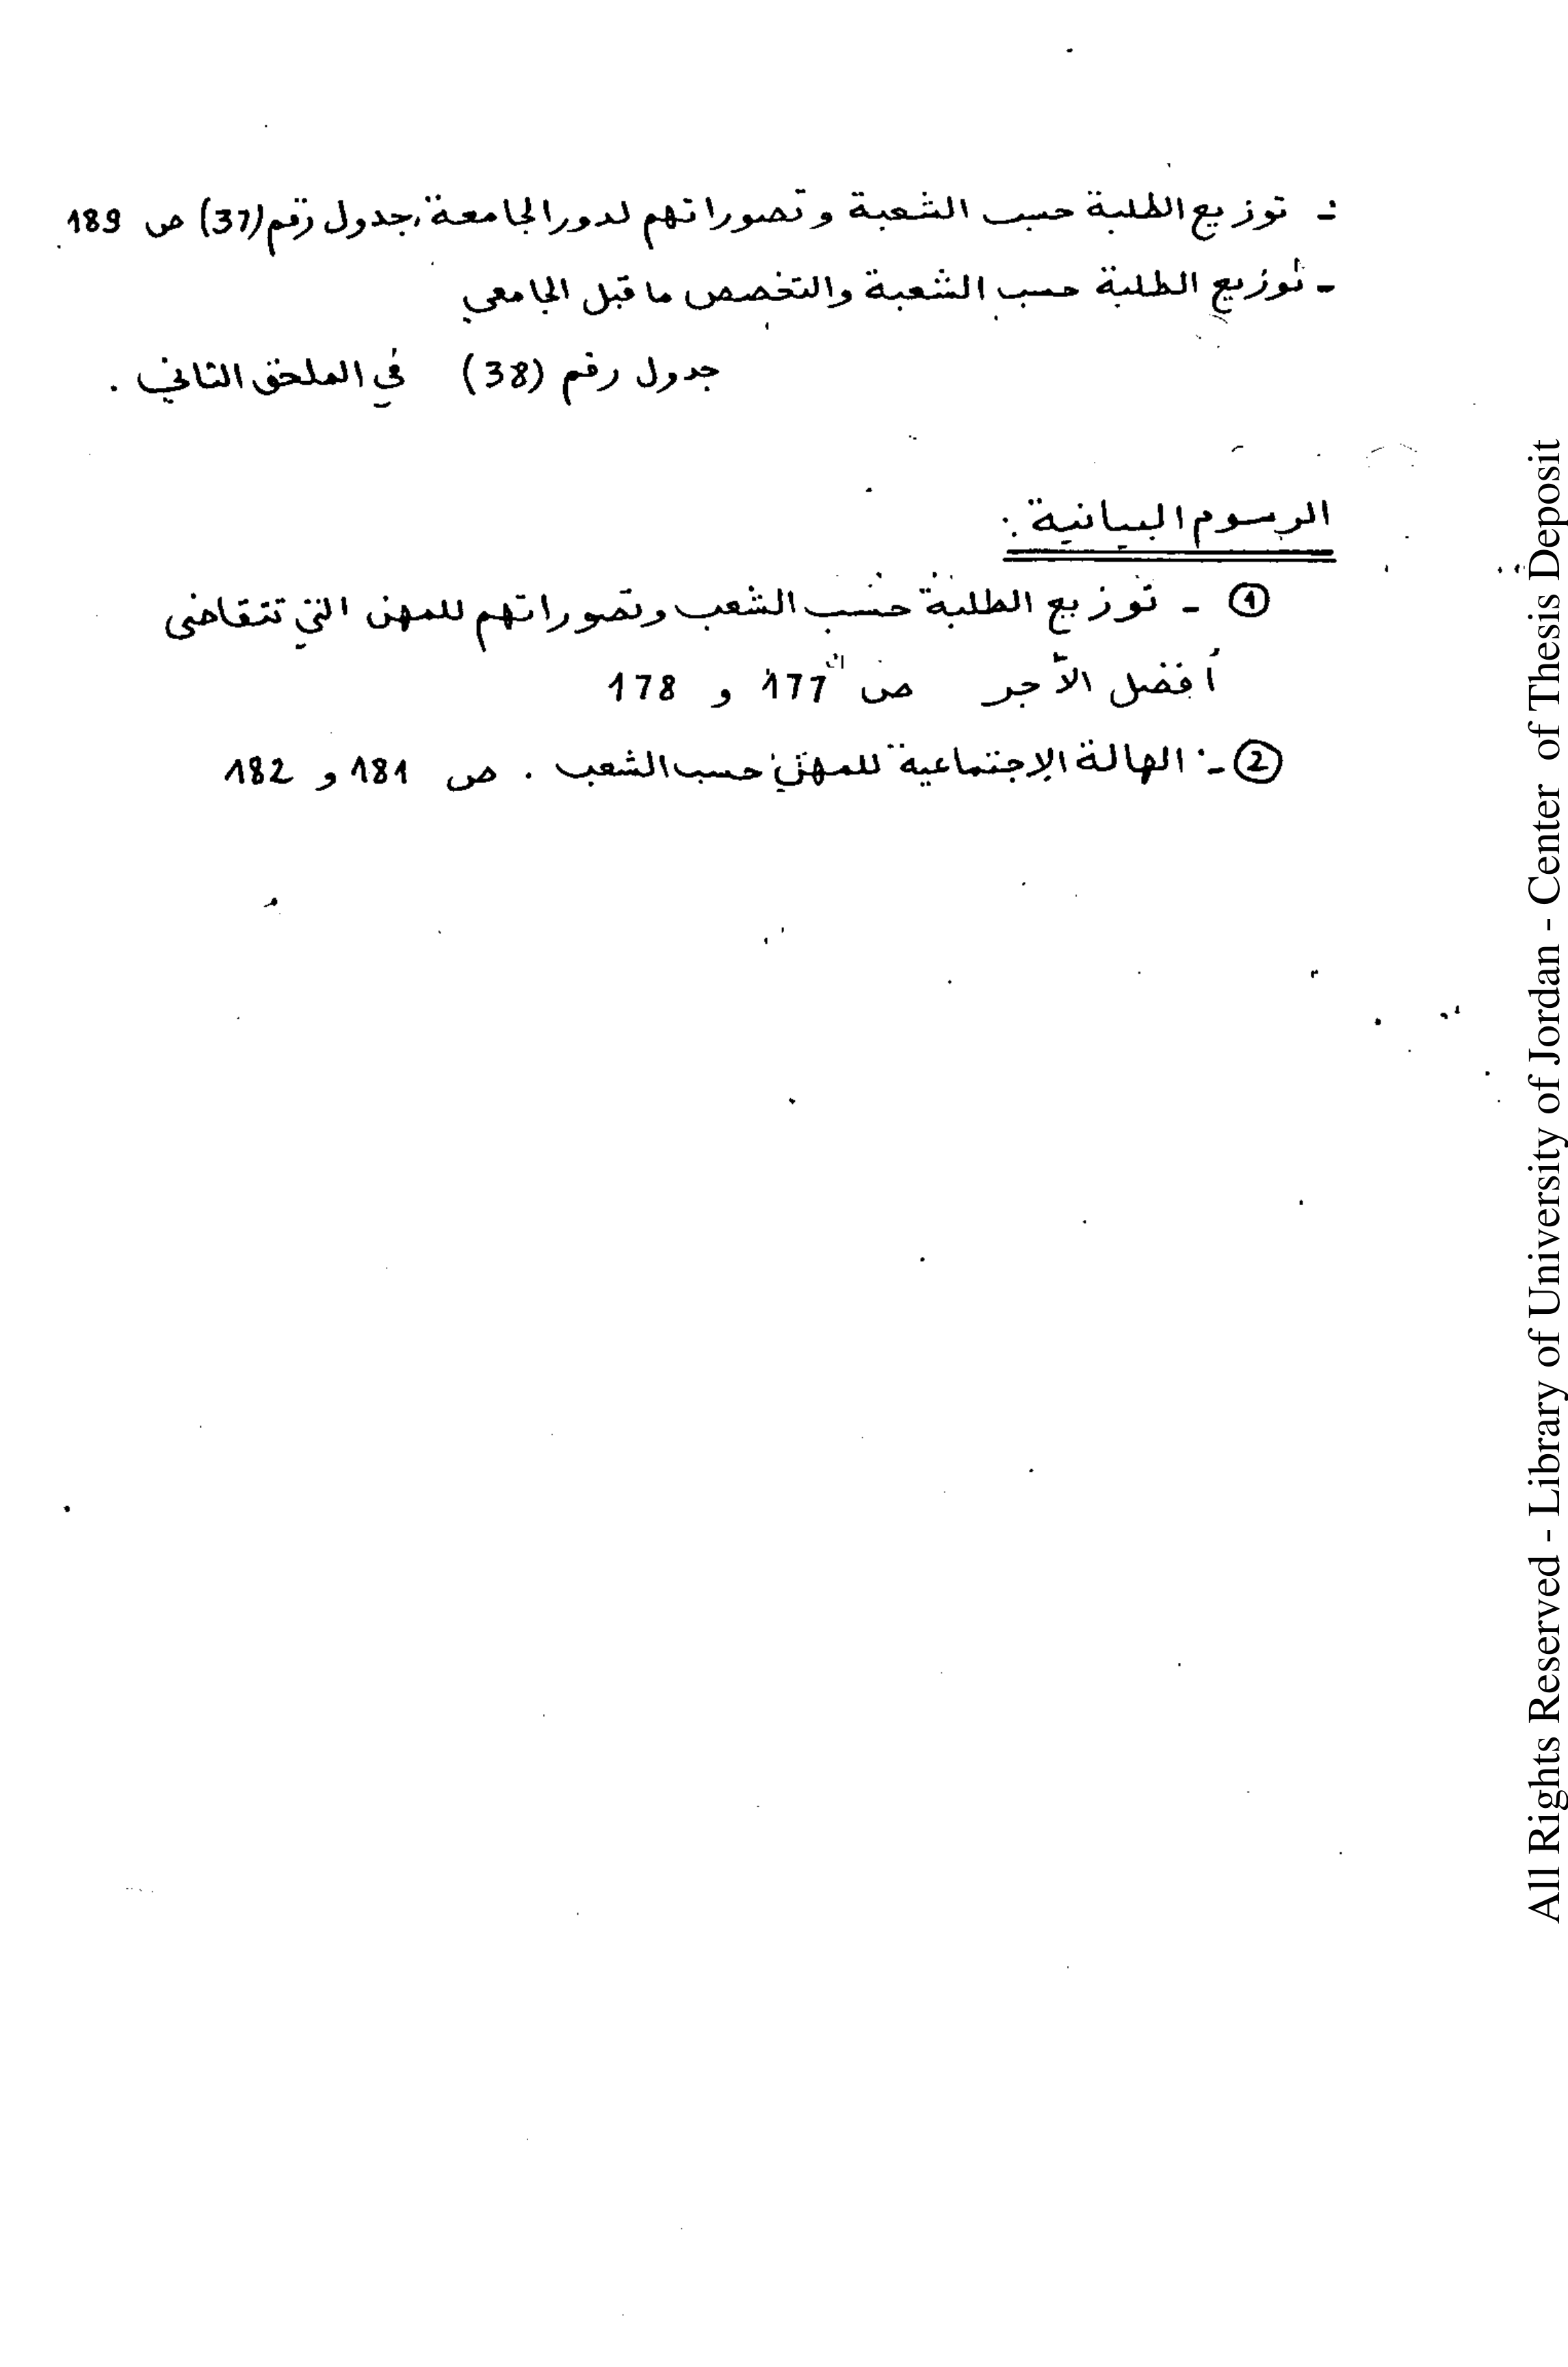 - توزيع الطلبة حسب الشعبة وتصوراتهم لدور الجامعة، جدول رقم (37) ص 189
- توزيع الطلبة حسب الشعبة والتخصص ما قبل الجامعي
جدول رقم (38) في الملحق الثاني .
الرسوم البيانية :
① - توزيع الطلبة حسب الشعب وتصوراتهم للمهن التي تتقاضى
أفضل الأجر ص 177 و 178
② - الهالة الإجتماعية للمهن حسب الشعب . ص 181 و 182
All Rights Reserved - Library of University of Jordan - Center of Thesis Deposit